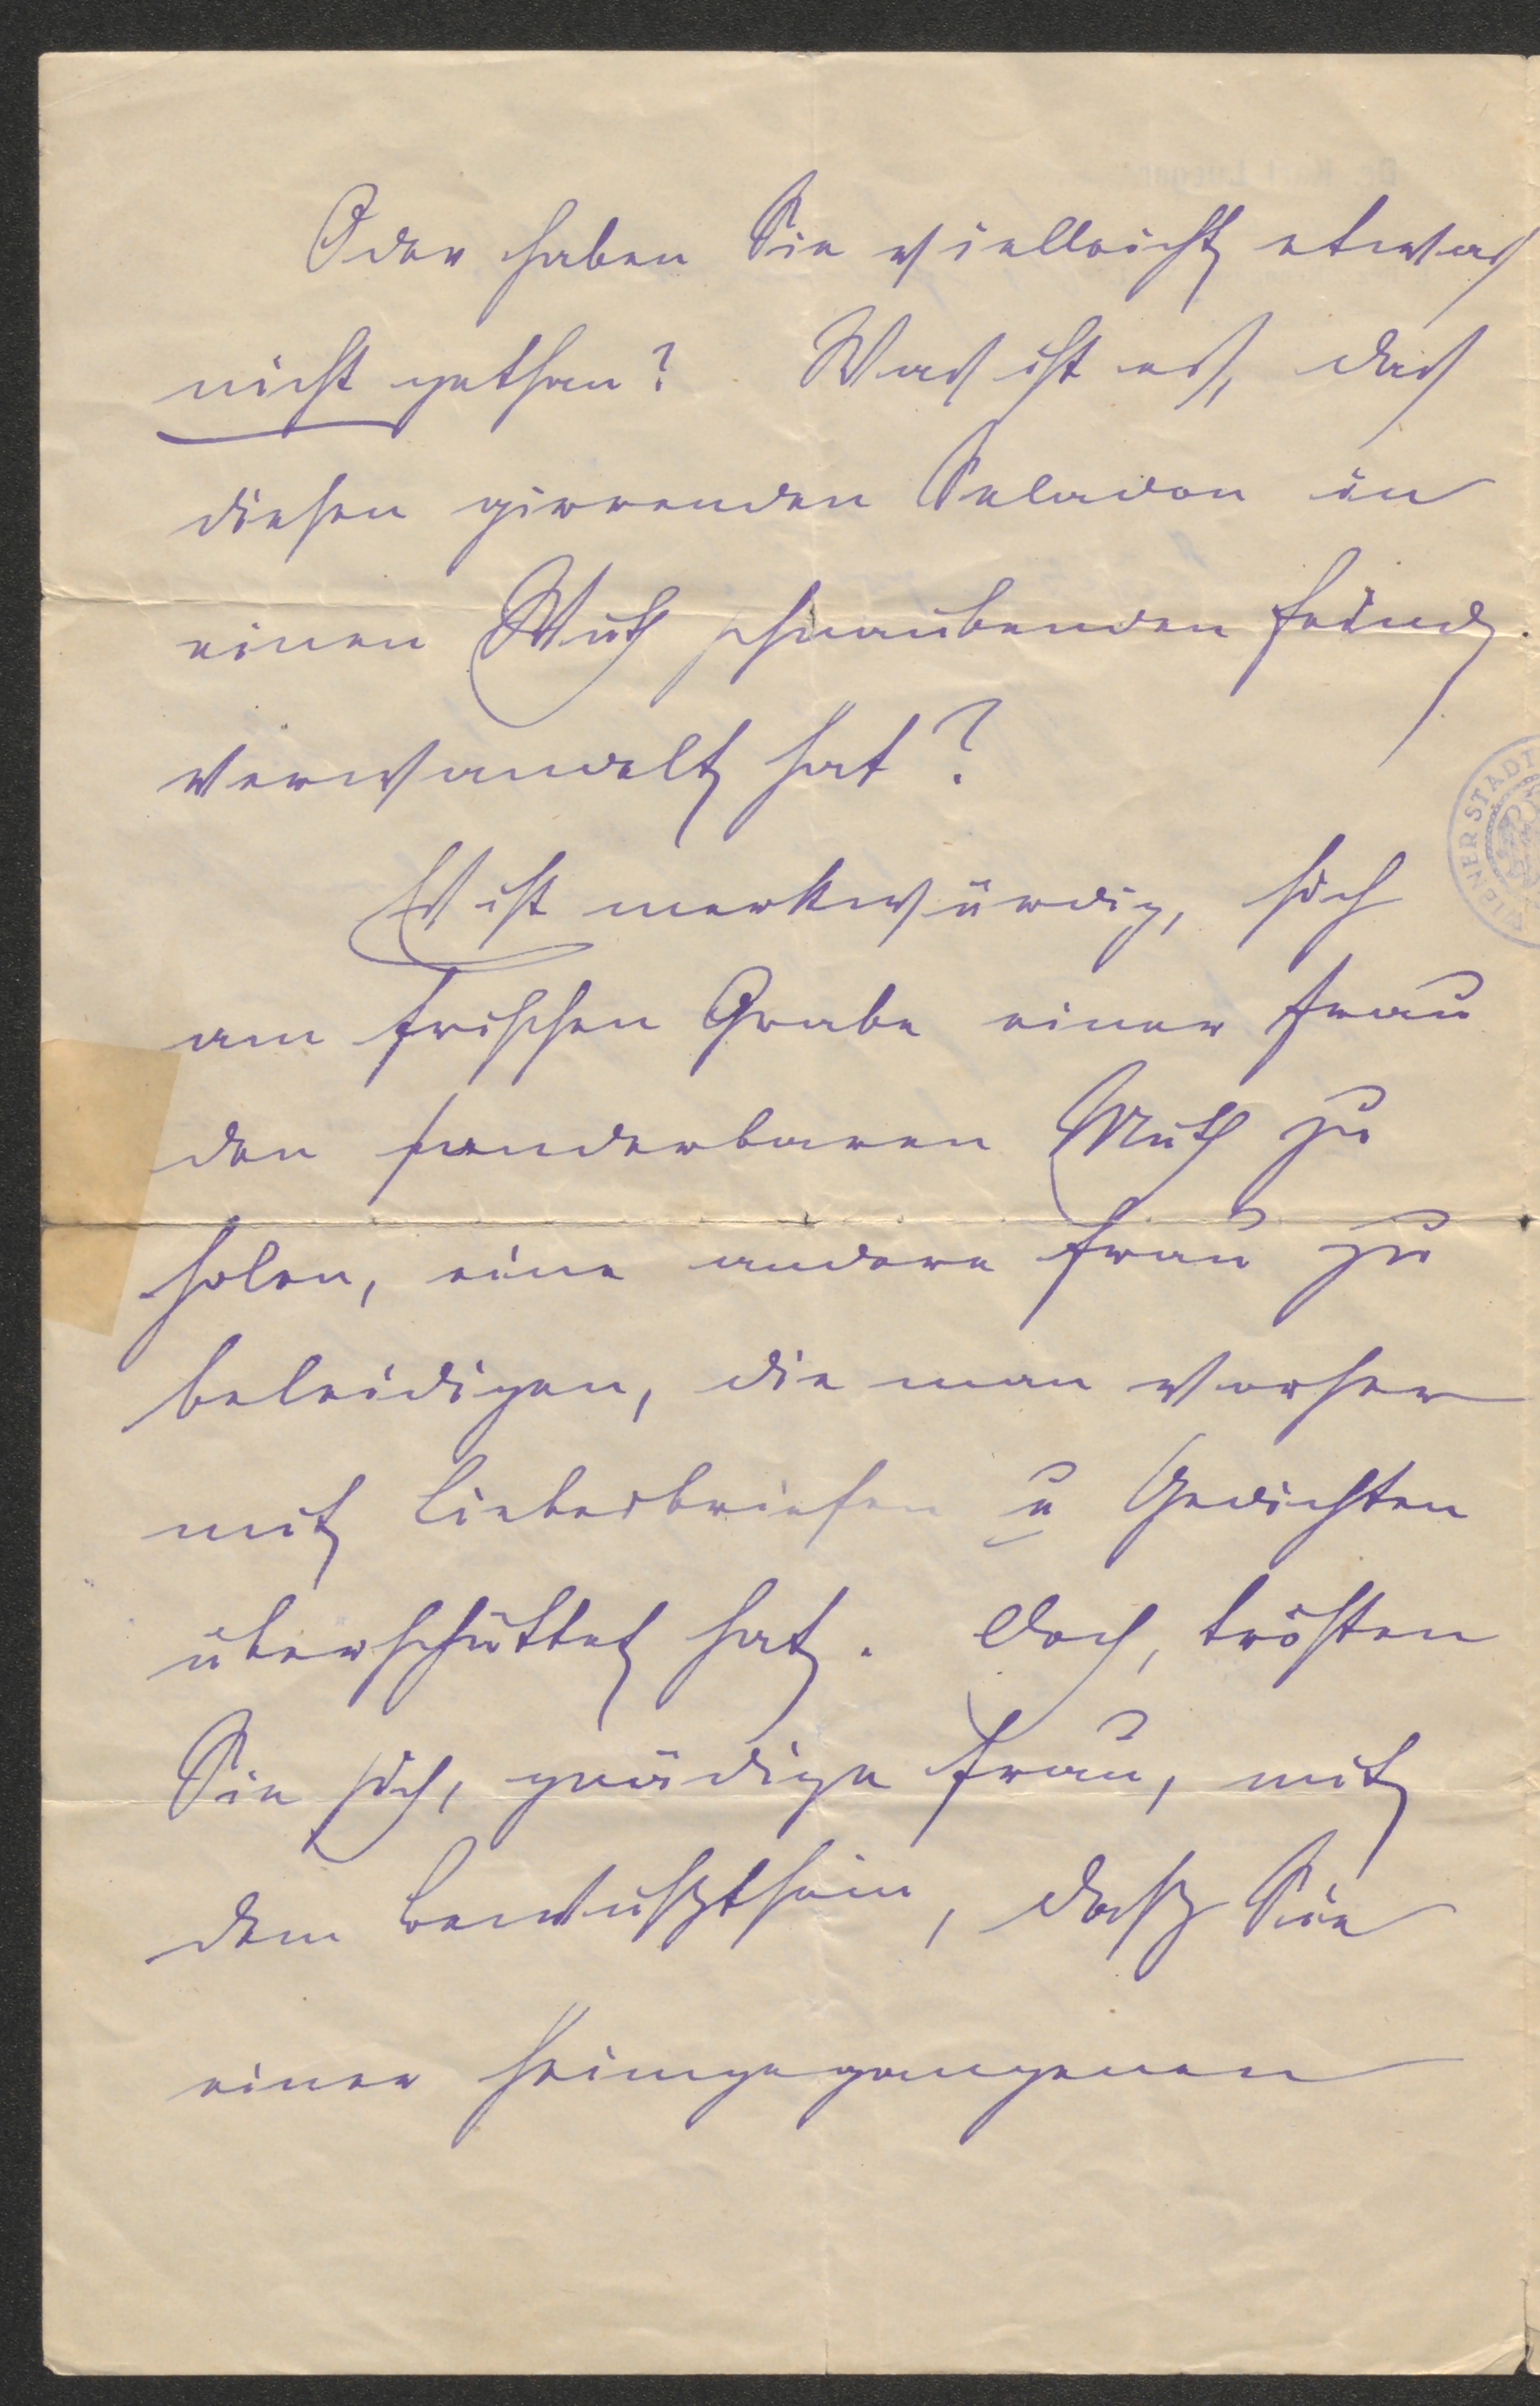 Oder haben Sie vielleicht etwas
nicht gethan? Was ist es, das
diesen girrenden Seladon in
einen Wuth schnaubenden Feind
verwandelt hat?
Es ist merkwürdig, sich
am frischen Grabe einer Frau
den sonderbaren Muth zu
holen, eine andere Frau zu
beleidigen, die man vorher
mit Liebesbriefen u Gedichten
überschüttet hat. Doch, trösten
Sie sich, gnädige Frau, mit
dem Bewußtsein, daß Sie
einer heimgegangenen
WIENER STADT